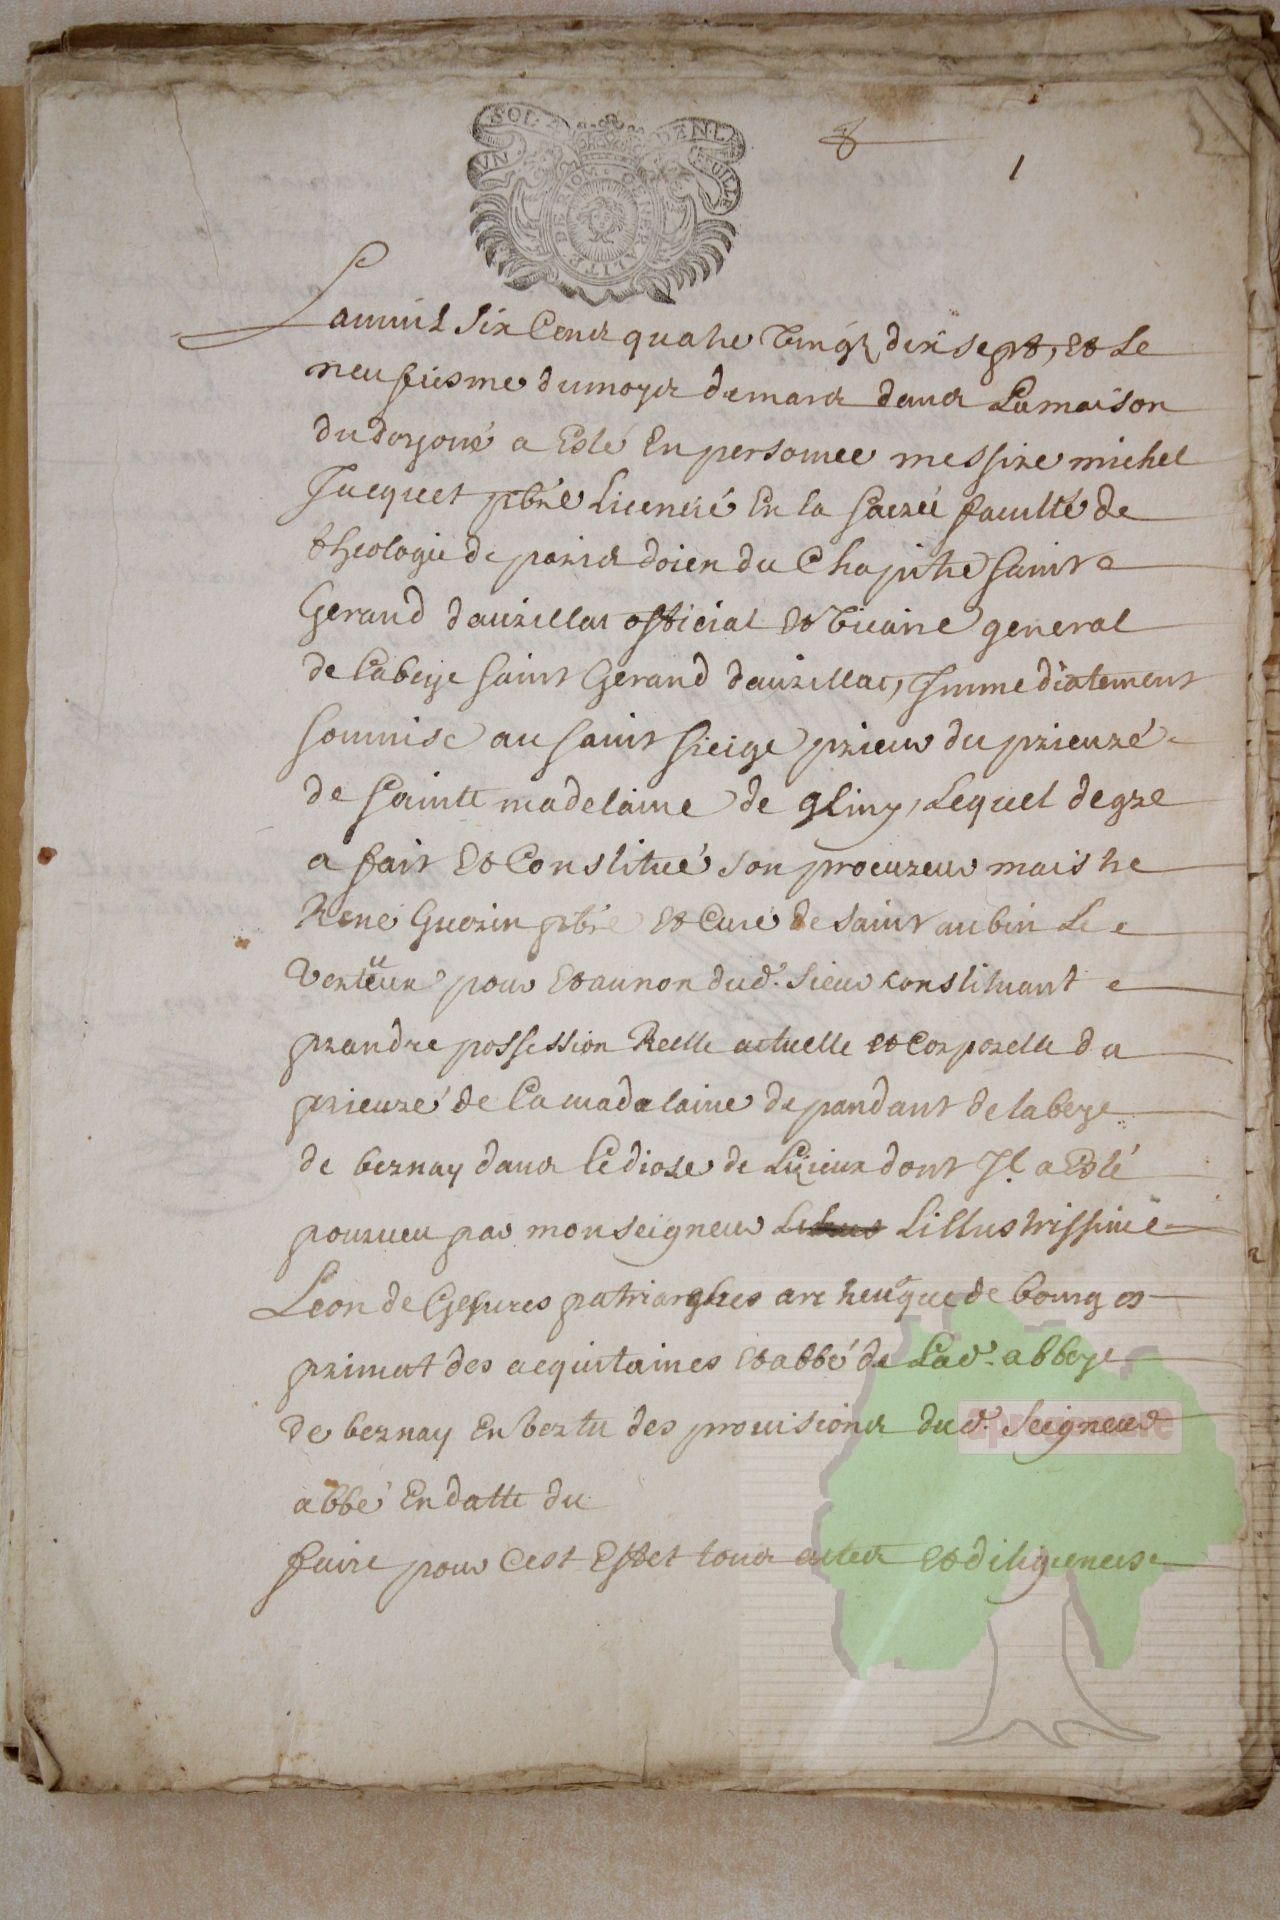 UN SOL LA DEMI FEUILLE
GENERALITE DE RIOM
8
1
Lanmil six Cens quatre vingt dix sept, et Le
neufiesme dumoys demars dans Lamaison
du doyoné a Esté En personnee messire michel
Jacquet pbre Licencié En la sacrée faculté de
theologie de paris doien du Chapitre saint
Gerand dauzillac official et vicaire general
de Labeye saint Gerand dauzillac, Immediatement
soumise au saint sieige prieur du prieuzé
de sainte madelaine de gliny, Lequel degre
a fait et Constitué son procureur maistre
René Guerin pbre et Curé de saint aubin Le
Vertueur pour et aunon dud. sieur constituant
prandre possession Reelle actuelle et Corporelle du
prieuré de La madelaine depandant de labeye
de bernay dans Lediose de Lizieux dont Il a Esté
pourueu par monseigneur Lillustrissime
Leon de Gesures patriarghes archeuesque de bourges
primat des acquitaines et abbé de Lad. abbeye
de bernay En vertu des prouisions dud. Seigneur
abbé En datte du
faire pour Cest Effet tous actes et diligences
apreogenere